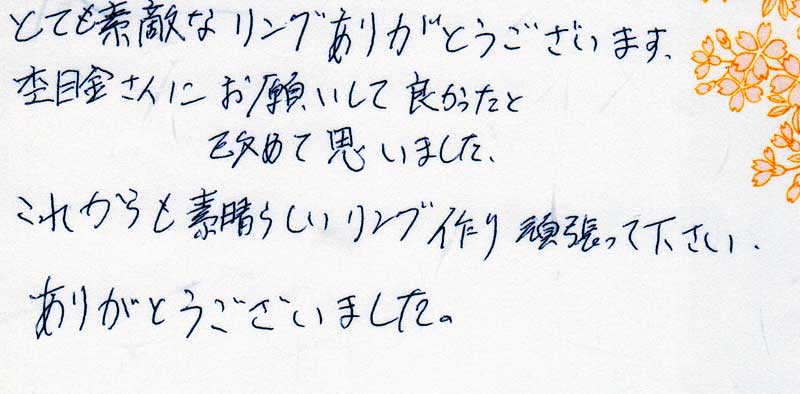 とても素敵なリングありがとうございます。
杢目金さんにお願いして良かったと
改めて思いました。
これからも素晴らしいリング作り頑張って下さい.
ありがとうございました。